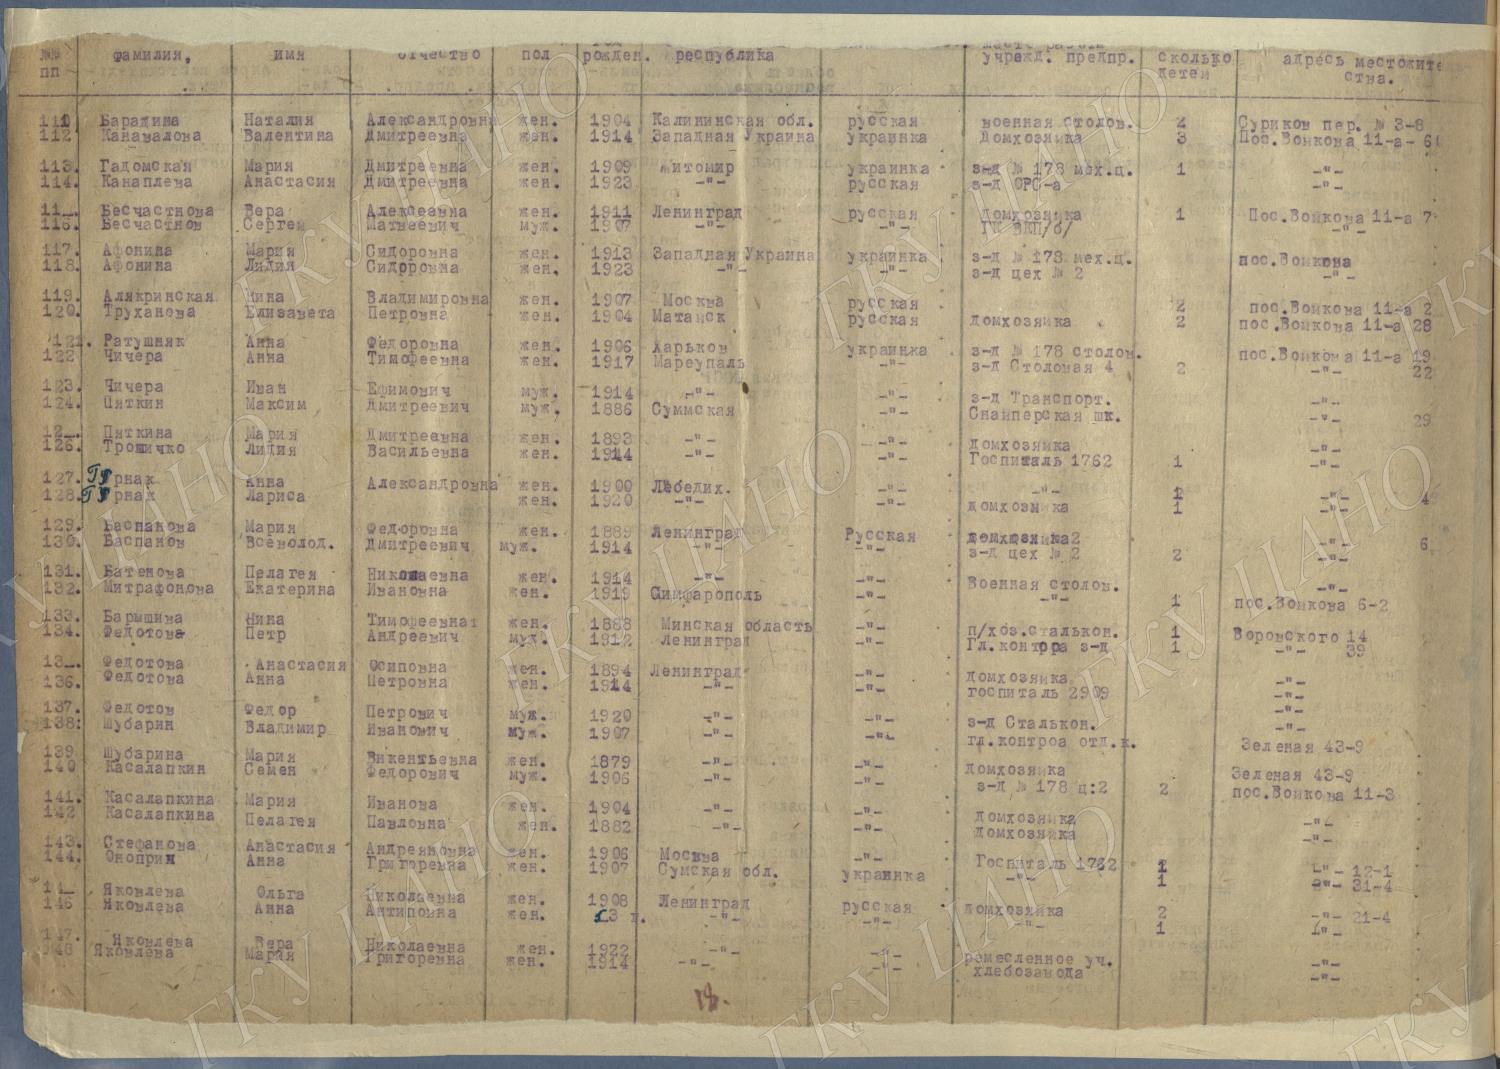 №№ фамилия, имя отчество пол рожден. республика учрежд. предпр. сколько адресь местожит
пп детей ства.
111 Барадина Наталия Александровна жен. 1904 Калининская обл. русская военная столов. 2 Суриков пер. № 3-8
112 Канавалова Валентина Дмитреевна жен. 1914 Западная Украина украинка Домхозяйка 3 Пос.Войкова 11-а-6
113. Гадомская Мария Дмитреевна жен. 1909 житомир украинка з-д № 178 мех.ц. 1 -"-
114. Канаплева Анастасия Дмитреевна жен. 1923 -"- русская з-д ОРС-а -"-
11_. Бесчастнова Вера Алексеевна жен. 1911 Ленинград русская Домхозяйка 1 Пос.Войкова 11-а 7
116. Бесчастнов Сергей Матвеевич муж. 1907 -"- -"- ГК ВКП/б/ -"-
117. Афонина Мария Сидоровна жен. 1913 Западная Украина украинка з-д № 178 мех.ц. пос.Войкова
118. Афонина Лидия Сидоровна жен. 1923 -"- -"- з-д цех № 2 -"-
119. Алякринская Нина Владимировна жен. 1907 Москва русская 2 пос.Войкова 11-а 2
120. Труханова Елизавета Петровна жен. 1904 Матайск русская домхозяйка 2 пос.Войкова 11-а 28
121. Ратушняк Анна Федоровна жен. 1906 Харьков украинка з-д № 178 столов. пос.Войкова 11-а 19
122 Чичера Анна Тимофеевна жен. 1917 Мареупаль -"- з-д Столовая 4 2 -"- 22
123. Чичера Иван Ефимович муж. 1914 -"- -"- з-д Транспорт. -"-
124. Пяткин Максим Дмитреевич муж. 1886 Суммская -"- Снайперская шк. -"- 29
12_. Пяткина Мария Дмитреевна жен. 1893 -"- -"- домхозяйка -"-
126. Трошичко Лидия Васильевна жен. 1914 -"- -"- Госпиталь 1762 1 -"-
127. Гурнак Анна Александровна жен. 1900 Лебедих. -"- -"- 1 -"- 4
128. Гурнак Лариса жен. 1920 -"- -"- домхозяйка 1 -"-
129. Баспанова Мария Федоровна жен. 1889 Ленинград Русская домхозяйка -"- 6
130. Баспанов Всеволод. Дмитреевич муж. 1914 -"- -"- з-д цех № 2 2 -"-
131. Батенова Пелагея Николаевна жен. 1914 -"- -"- Военная столов. -"-
132. Митрафонова Екатерина Ивановна жен. 1919 Симфарополь -"- -"- 1 пос.Войкова 6-2
133. Барышива Нина Тимофеевна жен. 1888 Минская область -"- п/хоз.сталькон. 1 Воровского 14
134. Федотова Петр Андреевич муж. 1912 Ленинград -"- Гл.контора з-д 1 -"- 39
13_. Федотова Анастасия Осиповна жен. 1894 Ленинград -"- домхозяйка -"-
136. Федотова Анна Петровна жен. 1914 -"- -"- госпиталь 2909 -"-
137. Федотов Федор Петрович муж. 1920 -"- -"- з-д Сталькон. -"-
138. Шубарин Владимир Иванович муж. 1907 -"- -"- гл.контроа отд.к. -"-
139. Шубарина Мария Викентьевна жен. 1879 -"- -"- домхозяйка Зеленая 43-9
140 Касалапкин Семен Федорович муж. 1906 -"- -"- з-д № 178 ц:2 2 Зеленая 43-9
141. Касалапкина Мария Иванова жен. 1904 -"- -"- домхозяйка пос.Войкова 11-3
142 Касалапкина Пелагея Павловна жен. 1882 -"- -"- домхозяйка -"-
143. Стефанова Анастасия Андреяновна жен. 1906 Москва -"- Госпиталь 1762 1 -"- 12-1
144. Оноприн Анна Григоревна жен. 1907 Сумская обл. украинка -"- 1 -"- 31-4
14_ Яковлева Ольга Николаевна жен. 1908 Ленинград русская домхозяйка 2 -"- 21-4
146 Яковлева Анна Антиповна жен. -"- -"- -"- 1 -"-
147. Яковлева Вера Николаевна жен. 1922 -"- -"- ремесленное уч. -"-
148 Яковлева Мария Григоревна жен. 1914 -"- -"- хлебозавода -"-
18.
ГКУ ЦАНО